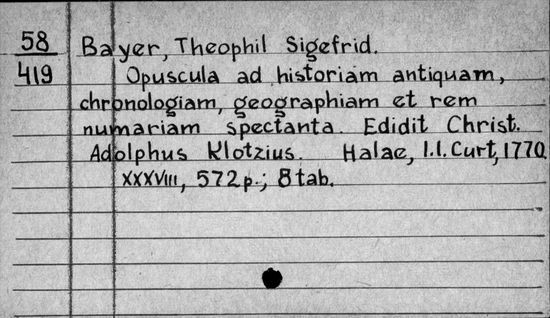 58 Bayer, Theophil Sigefrid.
419 Opuscula ad historiam antiquam,
chronologiam, geographiam et rem
numariam spectanta. Edidit Christ.
Adolphus Klotzius. Halae, I.I. Curt, 1770.
XXXVIII, 572 p.; 8 tab.